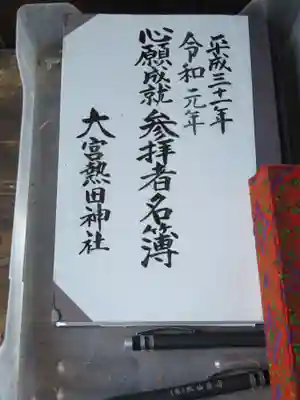 平成三十一年
令和元年
心願成就 参拝者名簿
大宮熱田神社